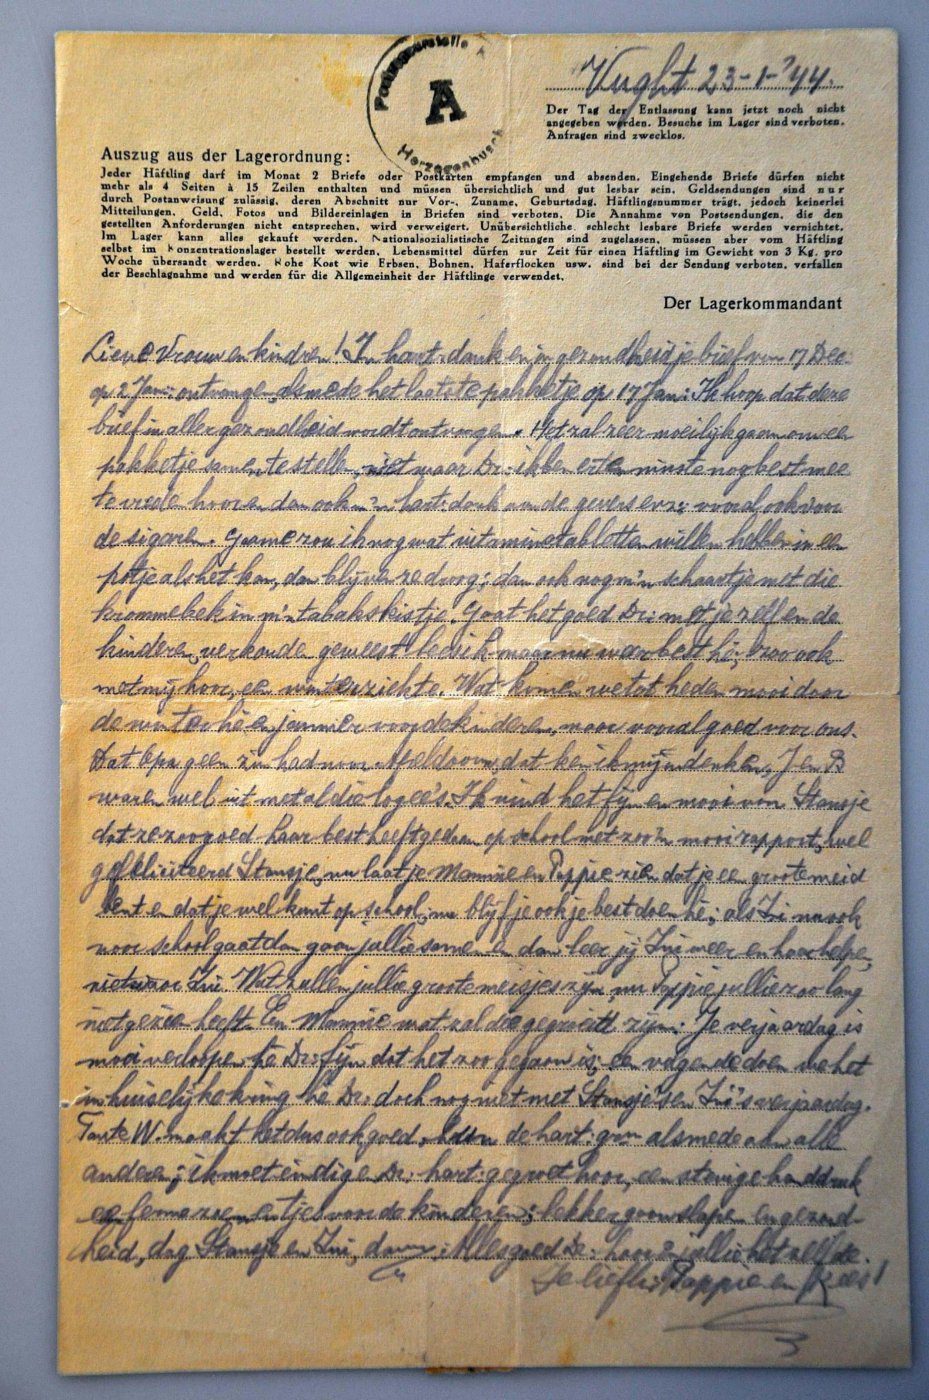 Postzensurstelle
A
Herzogenbusch
Vught 23-1-'44.
Der Tag der Entlassung kann jetzt noch nicht
angegeben werden. Besuche im Lager sind verboten.
Anfragen sind zwecklos.
Auszug aus der Lagerordnung:
Jeder Häftling darf im Monat 2 Briefe oder Postkarten empfangen und absenden. Eingehende Briefe dürfen nicht
mehr als 4 Seiten à 15 Zeilen enthalten und müssen übersichtlich und gut lesbar sein. Geldsendungen sind nur
durch Postanweisung zulässig, deren Abschnitt nur Vor-, Zuname, Geburtsdag, Häftlingsnummer trägt, jedoch keinerlei
Mitteilungen. Geld, Fotos und Bildereinlagen in Briefen sind verboten. Die Annahme von Postsendungen, die den
gestellten Anforderungen nicht entsprechen, wird verweigert. Unübersichtliche, schlecht lesbare Briefe werden vernichtet.
Im Lager kann alles gekauft werden. Nationalsozialistische Zeitungen sind zugelassen, müssen aber vom Häftling
selbst im Konzentrationslager bestellt werden, Lebensmittel dürfen zur Zeit für einen Häftling im Gewicht von 3 Kg. pro
Woche übersandt werden. Rohe Kost wie Erbsen, Bohnen, Haferflocken usw. sind bei der Sendung verboten, verfallen
der Beschlagnahme und werden für die Allgemeinheit der Häftlinge verwendet.
Der Lagerkommandant
Lieve Vrouw en kindren! In hart: dank en in gezondheid je brief van 17 Dec:
op 2 Jan: ontvangen, alsmede het laatste pakketje op 17 Jan: Ik hoop dat deze
brief in aller gezondheid wordt ontvangen. Het zal zeer moeilijk gaan om een
pakketje samen te stellen, niet waar Dr: ik ben er ten minste nog best mee
tevrede hoor en dan ook m'n hart: dank aan de gevers enz: vooral ook voor
de sigaren. Gaarne zou ik nog wat vitaminetabletten willen hebben in een
potje als het kan, dan blijven ze droog; dan ook nog m'n schaartje met die
kromme bek in m'n tabakskistje. Gaat het goed Dr: met je zelf en de
kinderen, verkouden geweest lees ik maar nu weer best hé; zoo ook
met mij hoor, een winterziekte. Wat komen we tot heden mooi door
de winter heen, jammer voor de kinderen, maar vooral goed voor ons.
Dat Opa geen zin had voor Apeldoorn, dat kan ik mij indenken, J en B
waren wel uit met al die logee's. Ik vind het fijn en mooi van Stansje
dat ze zoo goed haar best heeft gedaan op school met zoo'n mooi rapport, wel
gefeliciteerd Stansje, nu laat je Mammie en Pappie zien dat je een groote meid
bent en dat je wel kunt op school, nu blijf je ook je best doen hé; als Iri nu ook
naar school gaat dan gaan jullie samen en dan leer jij Iri meer en haar helpen,
nietwaar Iri. Wat zullen jullie groote meisjes zijn, nu Pappie jullie zoo lang
niet gezien heeft. En Mammie wat zal die gegroeid zijn: Je verjaardag is
mooi verloopen hé Dr: fijn dat het zoo gegaan is; en volgende doen we het
in huiselijke kring hé Dr: doch nog niet met Stansje's en Iri's verjaardag.
Tante W. maakt het dus ook goed, de hart: gr: alsmede aan alle
anderen; ik moet eindigen Dr: hart: gegroet hoor, een stevige handdruk
en ferme zoenentjes voor de kinderen; lekker gaan slapen en gezond-
heid, dag Stansje en Iri, daag; Alles goed Dr: hoor en jullie hetzelfde.
Je liefh: Pappie en Kees!